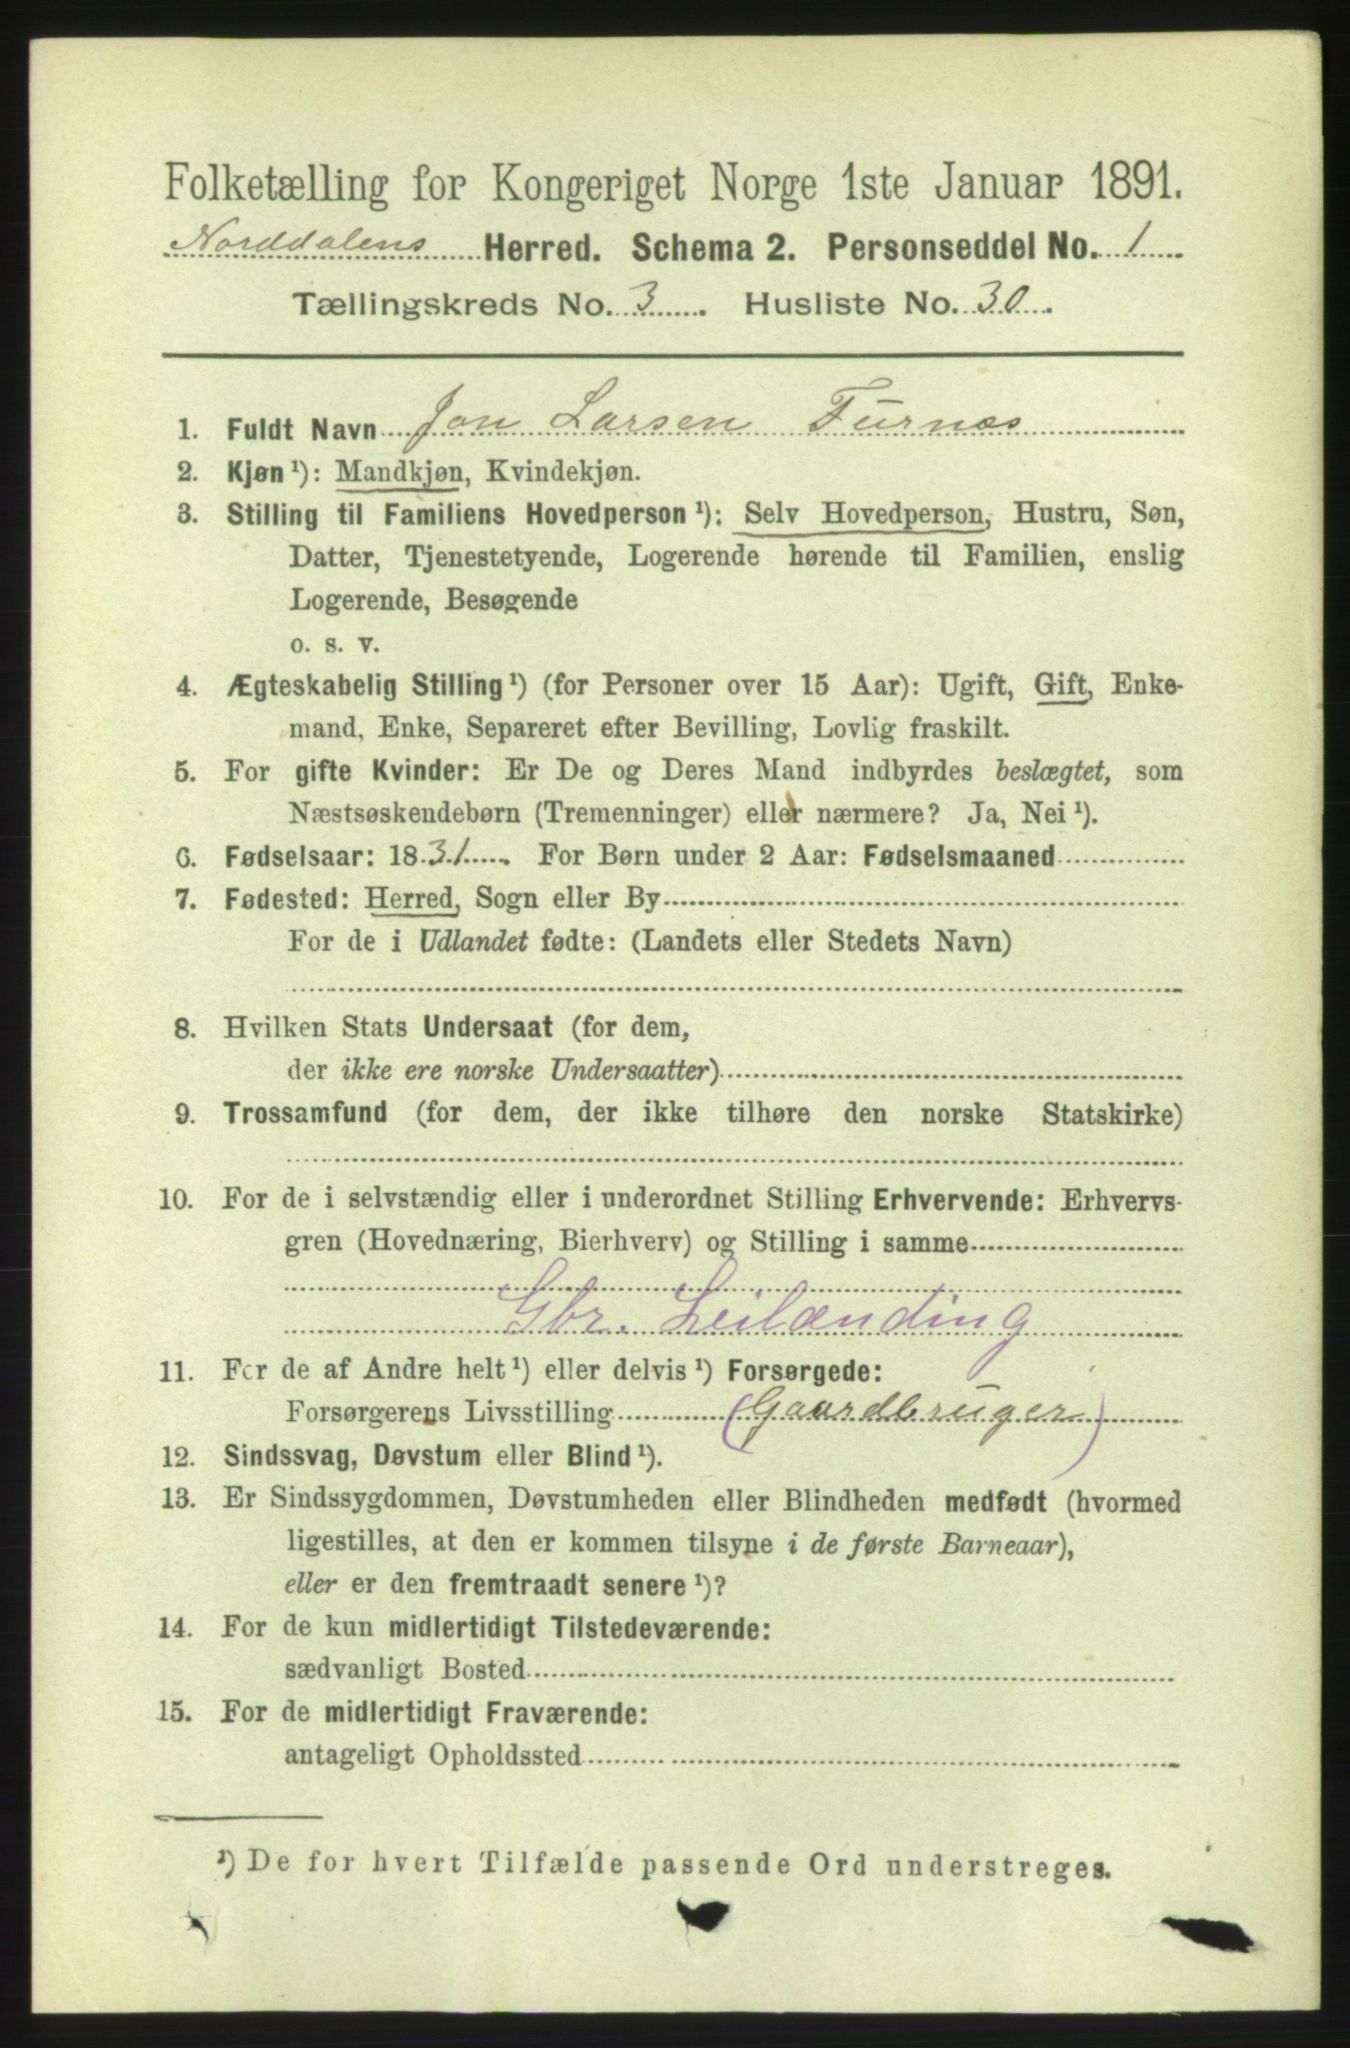 Folketælling for Kongeriget Norge 1ste Januar 1891.
Norddalens Herred. Schema 2. Personseddel No. 1
Tællingskreds No. 3. Husliste No. 30.
1. Fuldt Navn Jon Larsen Furnæs
2. Kjøn ¹): Mandkjøn, Kvindekjøn.
3. Stilling til Familiens Hovedperson ¹): Selv Hovedperson, Hustru, Søn,
Datter, Tjenestetyende, Logerende hørende til Familien, enslig
Logerende, Besøgende
o. s. v.
4. Ægteskabelig Stilling ¹) (for Personer over 15 Aar): Ugift, Gift, Enke-
mand, Enke, Separeret efter Bevilling, Lovlig fraskilt.
5. For gifte Kvinder: Er De og Deres Mand indbyrdes beslægtet, som
Næstsøskendebørn (Tremenninger) eller nærmere? Ja, Nei ¹).
6. Fødselsaar: 1831. For Børn under 2 Aar: Fødselsmaaned
7. Fødested: Herred, Sogn eller By
For de i Udlandet fødte: (Landets eller Stedets Navn)
8. Hvilken Stats Undersaat (for dem,
der ikke ere norske Undersaatter)
9. Trossamfund (for dem, der ikke tilhøre den norske Statskirke)
10. For de i selvstændig eller i underordnet Stilling Erhvervende: Erhvervs-
gren (Hovednæring, Bierhverv) og Stilling i samme
Gbr. Leilænding
11. For de af Andre helt ¹) eller delvis ¹) Forsørgede:
Forsørgerens Livsstilling (Gaardbruger)
12. Sindssvag, Døvstum eller Blind ¹).
13. Er Sindssygdommen, Døvstumheden eller Blindheden medfødt (hvormed
ligestilles, at den er kommen tilsyne i de første Barneaar),
eller er den fremtraadt senere ¹)?
14. For de kun midlertidigt Tilstedeværende:
sædvanligt Bosted
15. For de midlertidigt Fraværende:
antageligt Opholdssted
¹) De for hvert Tilfælde passende Ord understreges.